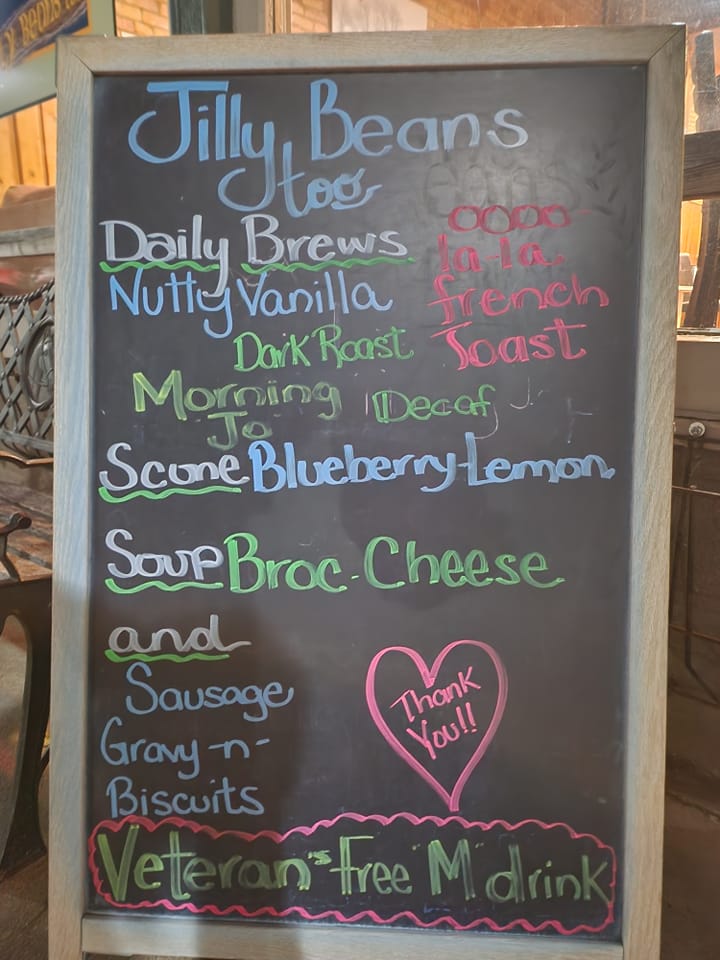 Jilly Beans
too
Daily Brews
Nutty Vanilla
Dark Roast
Morning
Jo
Decaf
oooo-
la-la
french
Toast
Scone Blueberry-Lemon
Soup Broc-Cheese
and
Sausage
Gravy-n-
Biscuits
Thank
You!!
Veteran's free "M" drink